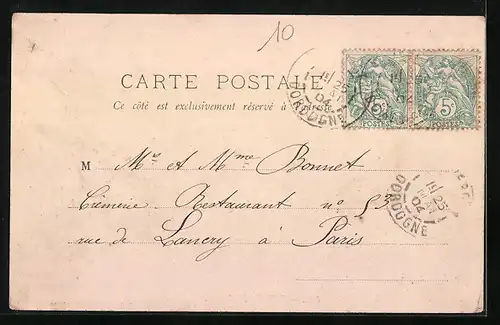 10
CARTE POSTALE
Ce côté est exclusivement réservé à l'adresse.
5c 5c
POSTES POSTES
DORDOGNE
04
M Mr et Mme Bonnet
Crèmerie Restaurant no 53
rue de Lancry à Paris
23
04
DORDOGNE